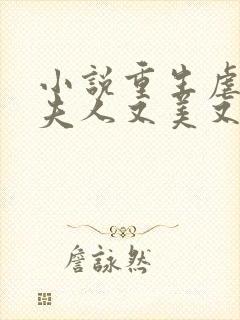 小說重生虐
夫人又美又
詹詠然